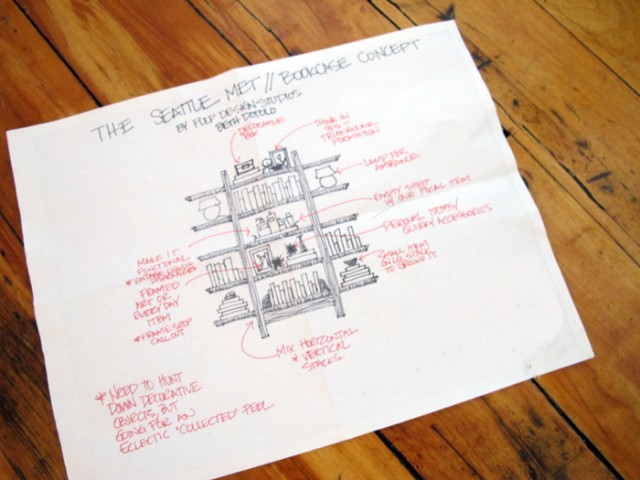 THE SEATTLE MET // BOOKCASE CONCEPT
BY PULP DESIGN STUDIOS
BETH DOTOLO
DECORATIVE
BOX
THINK IN
3'S -
TRIANGULAR
FORMATION
LAMP FOR
AMBIANCE
EMPTY SHELF
W/ ONE FOCAL ITEM
PERSONAL ITEMS/
QUIRKY ACCESSORIES
SMALL ITEM
ON LG STACK
TO GROUND IT
MAKE IT
FUNCTIONAL
* VINTAGE
FRAMED
ART OR
EVERY DAY
ITEM
* FRAME SHOP
CALL OUT
MIX HORIZONTAL
& VERTICAL
STACKS.
* NEED TO HUNT
DOWN DECORATIVE
OBJECTS, BUT
GOING FOR AN
ECLECTIC "COLLECTED" FEEL